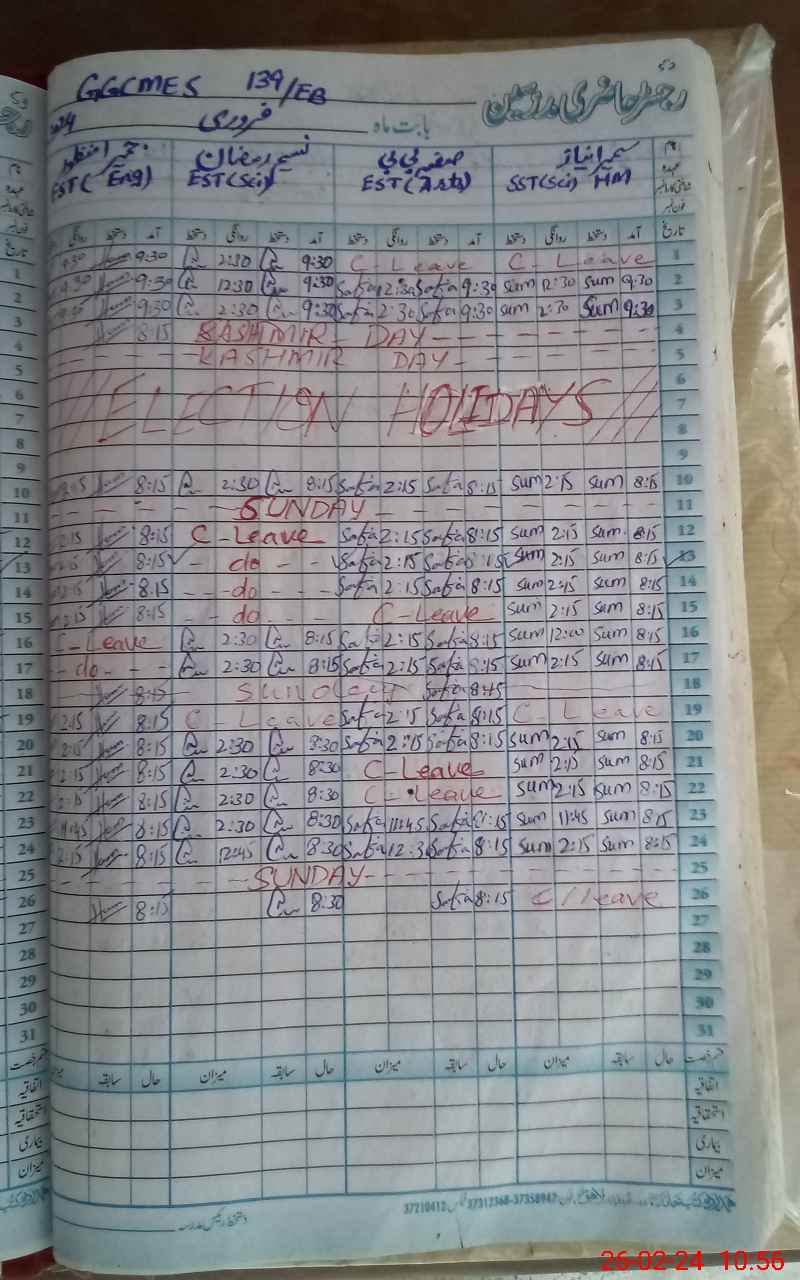 52
رجسٹر حاضری مدرسین
GGCMES 139/EB
بابت ماہ فروری
نام سمیرا نیاز صفیہ بی بی نسیم رمضان
عہدہ SST(Sci) HM EST(Arts) EST(Sci) EST(Eng)
تاریخ آمد دستخط روانگی دستخط آمد دستخط روانگی دستخط آمد دستخط روانگی دستخط آمد دستخط روانگی
9:30 2:30 9:30 C-Leave C-Leave 1
9:30 12:30 9:30 Safia 2:30 Safia 9:30 Sum 12:30 Sum 9:30 2
9:30 2:30 9:30 Safia 2:30 Safia 9:30 Sum 2:30 Sum 9:30 3
8:15 KASHMIR - DAY - - - - - - 4
- - - - KASHMIR DAY - - - - - - 5
6
ELECTION HOLIDAYS 7
8
9
8:15 2:30 8:15 Safia 2:15 Safia 8:15 Sum 2:15 Sum 8:15 10
- - - - - SUNDAY - - - - - - - 11
2:15 8:15 C-Leave Safia 2:15 Safia 8:15 Sum 2:15 Sum 8:15 12
2:15 8:15 - do - - Safia 2:15 Safia 8:15 Sum 2:15 Sum 8:15 13
2:15 8:15 - - do - - - Safia 2:15 Safia 8:15 Sum 2:15 Sum 8:15 14
2:15 8:15 - - do - - - C-Leave Sum 2:15 Sum 8:15 15
C-Leave 2:30 8:15 Safia 2:15 Safia 8:15 Sum 12:00 Sum 8:15 16
- do - - - 2:30 8:15 Safia 2:15 Safia 8:15 Sum 2:15 Sum 8:15 17
8:45 Sunday Safia 8:45 18
2:15 8:15 C-Leave Safia 2:15 Safia 8:15 C-Leave 19
2:15 8:15 2:30 8:30 Safia 2:15 Safia 8:15 Sum 2:15 Sum 8:15 20
2:15 8:15 2:30 8:30 C-Leave Sum 2:15 Sum 8:15 21
2:15 8:15 2:30 8:30 C-Leave Sum 2:15 Sum 8:15 22
11:45 8:15 2:30 8:30 Safia 11:45 Safia 8:15 Sum 11:45 Sum 8:15 23
2:15 8:15 12:45 8:30 Safia 12:30 Safia 8:15 Sum 2:15 Sum 8:15 24
- - - - - - SUNDAY - - - - - - - 25
8:15 8:30 Safia 8:15 C/Leave 26
27
28
29
30
31
قسم رخصت حال سابقہ میزان حال سابقہ میزان حال سابقہ میزان حال سابقہ میزان
اتفاقیہ
استحقاقیہ
بیماری
میزان
37210412 37312368-37358947
دستخط رئیس مدرسہ
26-02-24 10:56